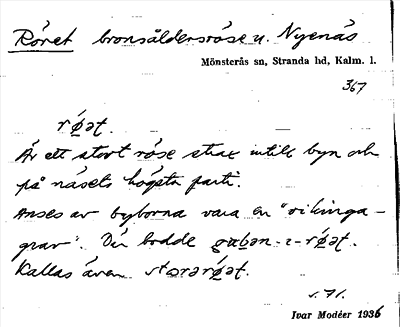 Röret bronsåldersröse u. Nyenäs
Mönsterås sn, Stranda hd, Kalm. l.
367
rø̀ət.
Är ett stort röse strax intill byn och
på näsets högsta parti.
Anses av byborna vara en "vikinga-
grav". Där bodde gubən-ı-rø̀ət.
Kallas även storərø̀ət.
s. 71.
Ivar Modéer 1936